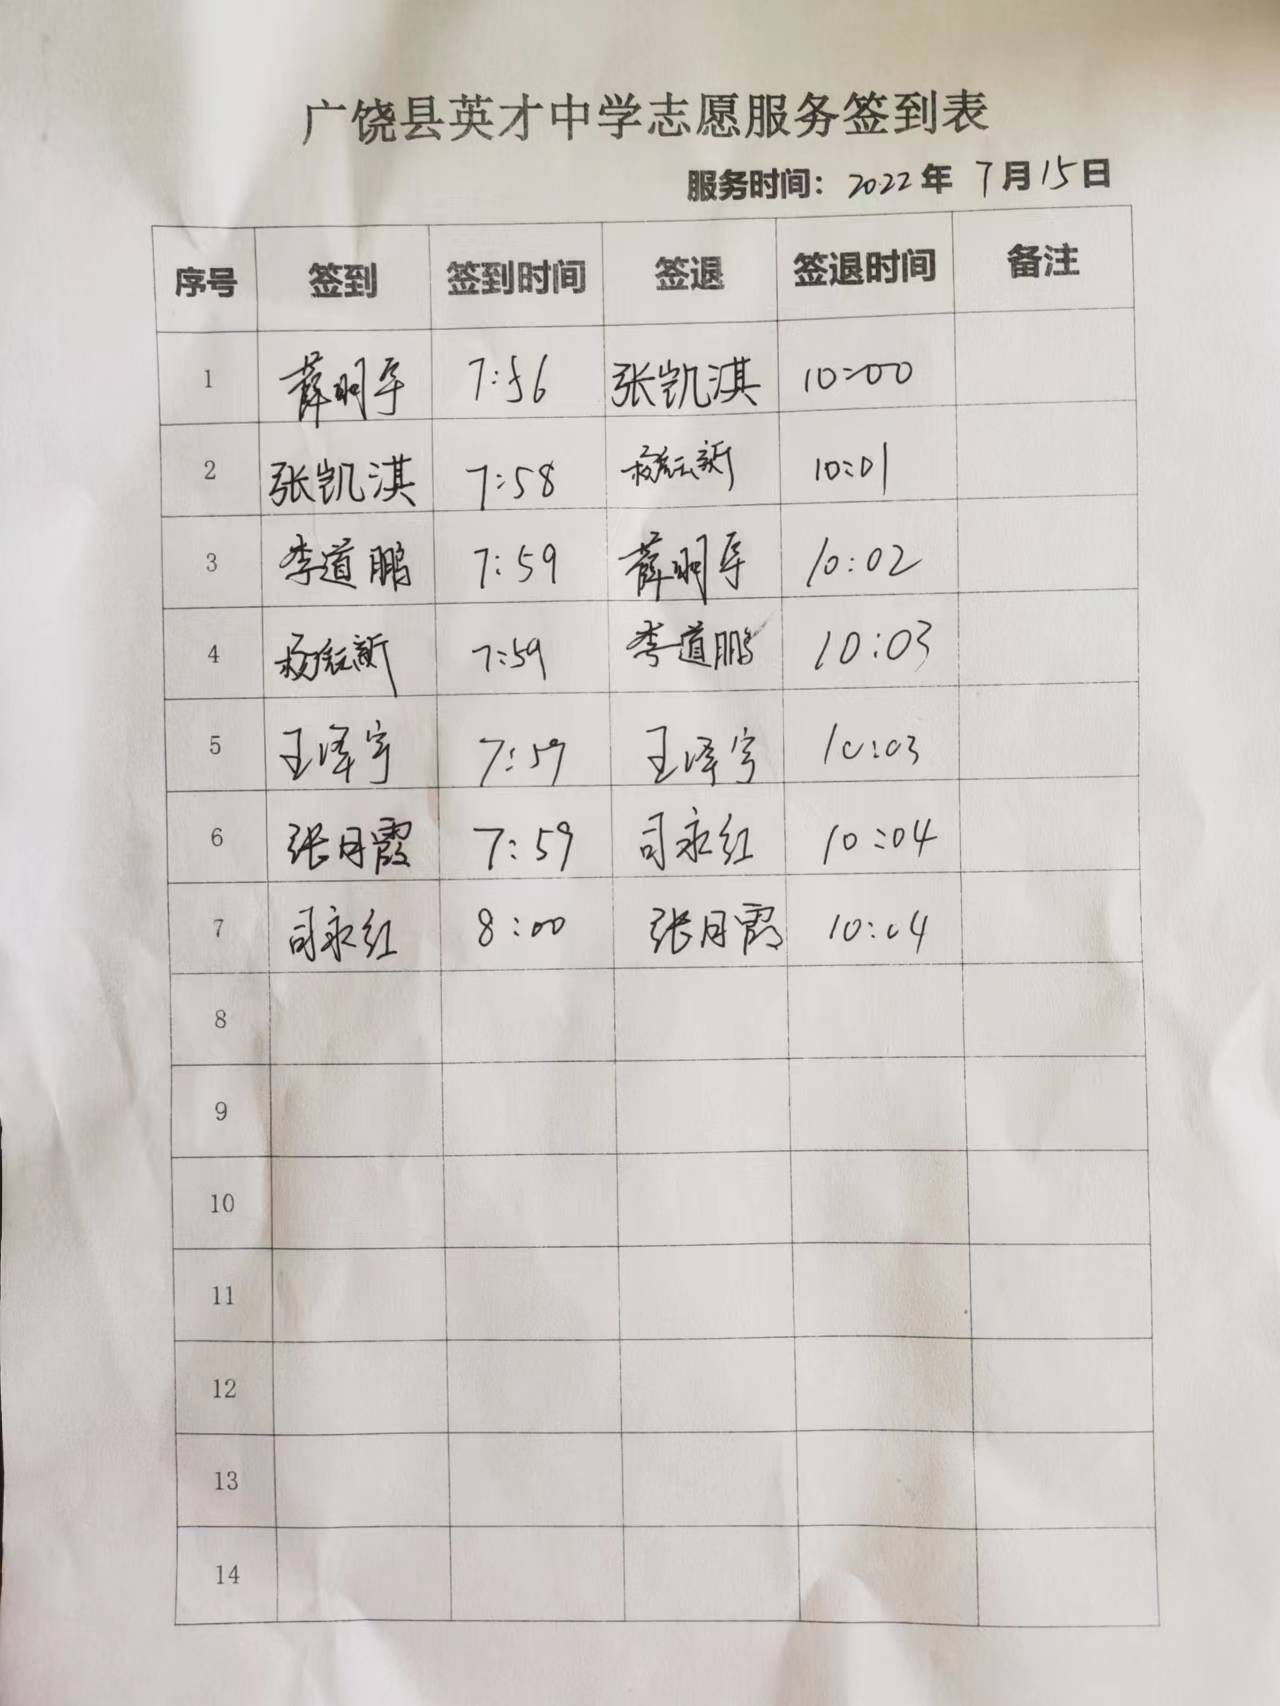 广饶县英才中学志愿服务签到表
服务时间：2022年 7月15日
序号 签到 签到时间 签退 签退时间 备注
1 薛明宇 7:56 张凯淇 10:00
2 张凯淇 7:58 10:01
3 李道鹏 7:59 薛明宇 10:02
4 7:59 李道鹏 10:03
5 王泽宇 7:59 王泽宇 10:03
6 张月霞 7:59 司永红 10:04
7 司永红 8:00 张月霞 10:04
8
9
10
11
12
13
14